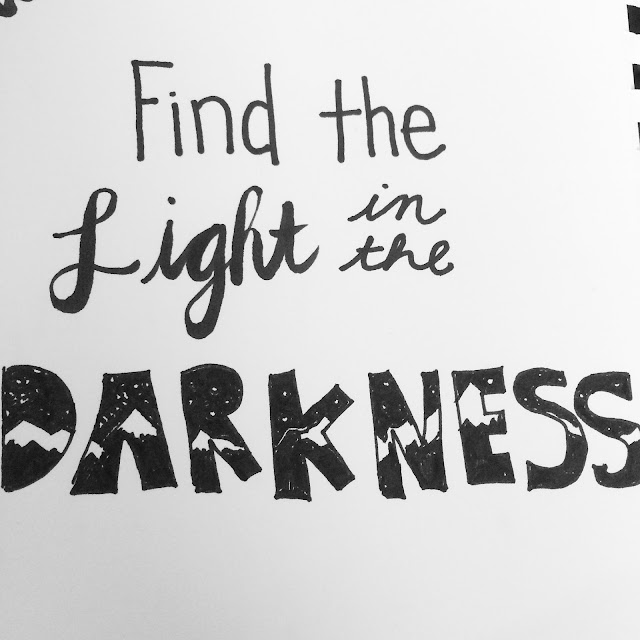 Find the
Light in the
DARKNESS